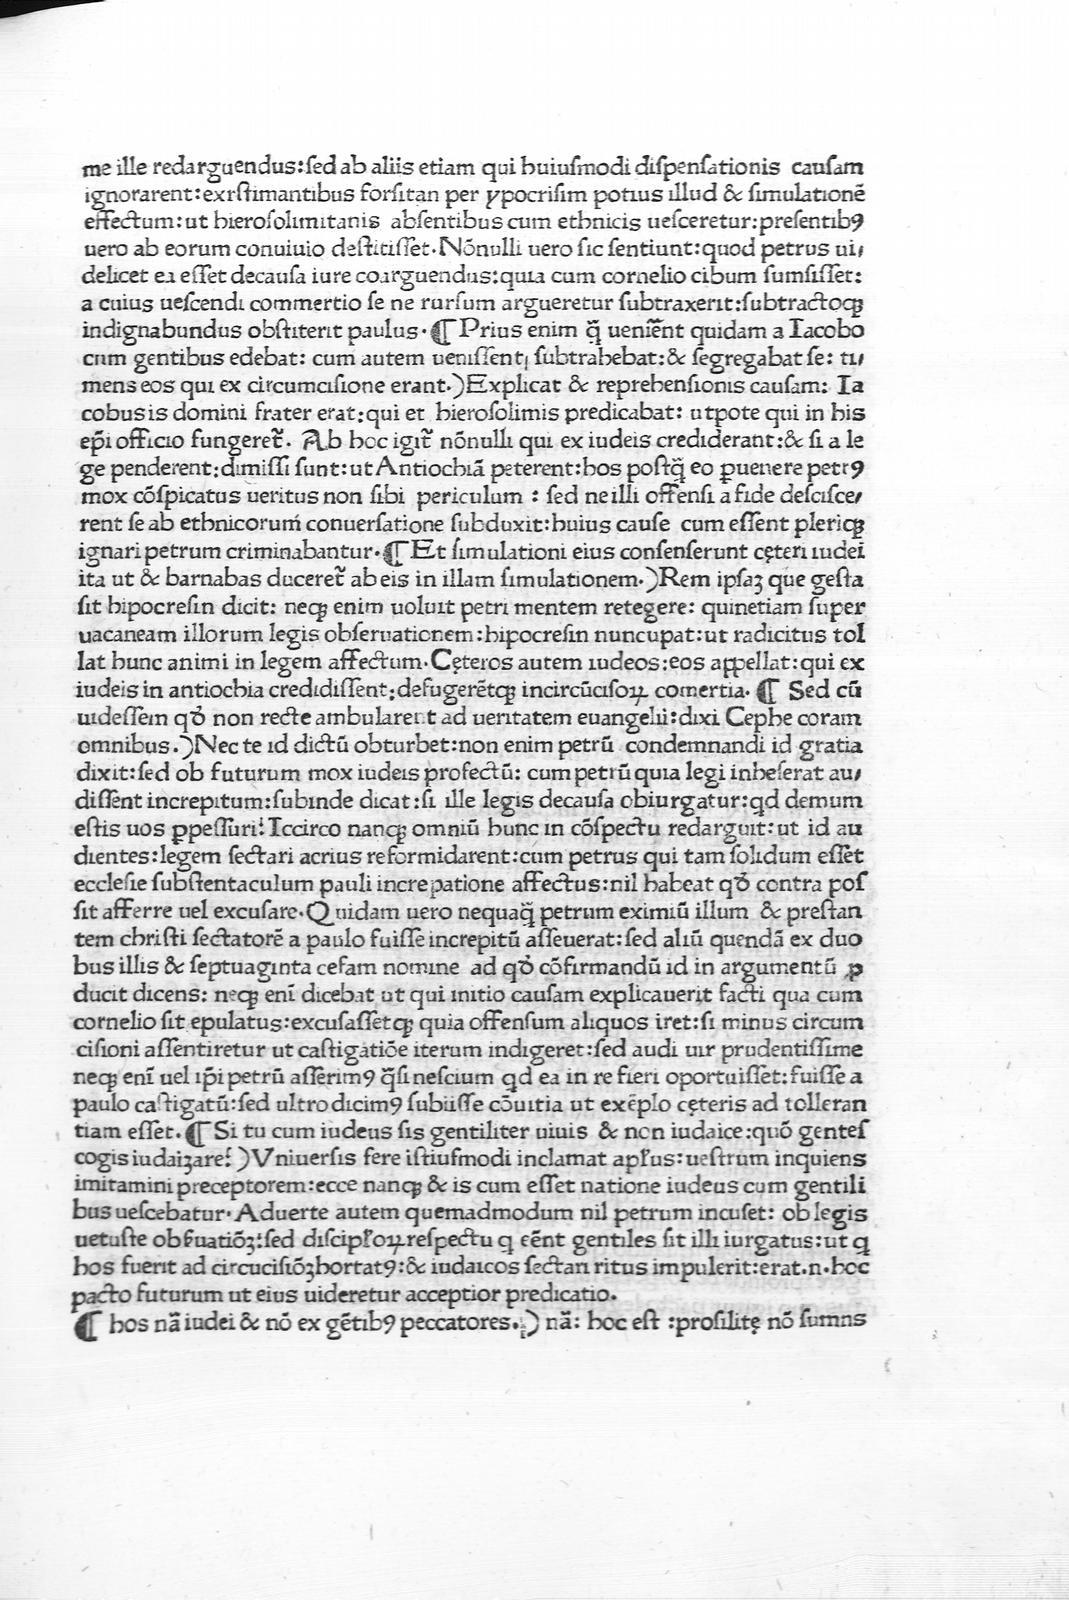 me ille redarguendus:ſed ab aliis etiam qui huiuſmodi diſpenſationis cauſam
ignorarent:exiſtimantibus forſitan per ypocriſim potius illud & ſimulationē
effectum:ut hieroſolimitanis abſentibus cum ethnicis ueſceretur:preſentibꝯ
uero ab eorum conuiuio deſtitiſſet. Nōnulli uero ſic ſentiunt:quod petrus ui⸗
delicet ea eſſet decauſa iure coarguendus:quia cum cornelio cibum ſumſiſſet:
a cuius ueſcendi commertio ſe ne rurſum argueretur ſubtraxerit:ſubtractoqꝫ
indignabundus obſtiterit paulus. ¶ Prius enim q̃ ueniēnt quidam a Iacobo
cum gentibus edebat: cum autem ueniſſent, ſubtrahebat:& ſegregabat ſe: ti⸗
mens eos qui ex circumciſione erant.)Explicat & reprehenſionis cauſam: Ia
cobus is domini frater erat:qui et hieroſolimis predicabat: utpote qui in his
ep̄i officio fungeret̃. Ab hoc igit̃ nōnulli qui ex iudeis crediderant:& ſi a le
ge penderent:dimiſſi ſunt:ut Antiochiā peterent:hos poſtq̃ eo ꝑuenere petrꝯ
mox cōſpicatus ueritus non ſibi periculum : ſed ne illi offenſi a fide deſciſce⸗
rent ſe ab ethnicorum conuerſatione ſubduxit:huius cauſe cum eſſent pleriqꝫ
ignari petrum criminabantur. ¶ Et ſimulationi eius conſenſerunt cęteri iudei
ita ut & barnabas duceret̃ ab eis in illam ſimulationem.)Rem ipſaꝫ que geſta
ſit hipocreſin dicit: neqꝫ enim uoluit petri mentem retegere: quinetiam ſuper
uacaneam illorum legis obſeruationem:hipocreſin nuncupat:ut radicitus tol
lat hunc animi in legem affectum. Cęteros autem iudeos:eos appellat:qui ex
iudeis in antiochia credidiſſent:defugerētqꝫ incircūciſoꝝ comertia. ¶ Sed cū
uideſſem qđ non recte ambularent ad ueritatem euangelii:dixi Cephe coram
omnibus.)Nec te id dictū obturbet:non enim petrū condemnandi id gratia
dixit:ſed ob futurum mox iudeis profectū: cum petrū quia legi inheſerat au⸗
diſſent increpitum:ſubinde dicat:ſi ille legis decauſa obiurgatur:qd demum
eſtis uos ꝑpeſſuri? Iccirco nanqꝫ omniū hunc in cōſpectu redarguit:ut id au
dientes:legem ſectari acrius reformidarent:cum petrus qui tam ſolidum eſſet
eccleſie ſubſtentaculum pauli increpatione affectus:nil habeat qđ contra poſ
ſit afferre uel excuſare. Quidam uero nequaq̃ petrum eximiū illum & preſtan
tem chriſti ſectatorē a paulo fuiſſe increpitū aſſeuerat:ſed aliū quendā ex duo
bus illis & ſeptuaginta cefam nomine ad qđ cōfirmandū id in argumentū ꝓ
ducit dicens: neqꝫ eni̅ dicebat ut qui initio cauſam explicauerit facti qua cum
cornelio ſit epulatus:excuſaſſetqꝫ quia offenſum aliquos iret:ſi minus circum
ciſioni aſſentiretur ut caſtigatiōe iterum indigeret:ſed audi uir prudentiſſime
neqꝫ eni̅ uel ip̄i petrū aſſerimꝯ q̃ſi neſcium qd ea in re fieri oportuiſſet:fuiſſe a
paulo caſtigatū:ſed ultro dicimꝯ ſubiiſſe cōuitia ut exēplo cęteris ad tolleran
tiam eſſet. ¶ Si tu cum iudeus ſis gentiliter uiuis & non iudaice:quō genteſ
cogis iudaizare?)Vniuerſis fere iſtiuſmodi inclamat apl̓us:ueſtrum inquiens
imitamini preceptorem:ecce nanqꝫ & is cum eſſet natione iudeus cum gentili
bus ueſcebatur. Aduerte autem quemadmodum nil petrum incuſet: ob legis
uetuſte obſuatiōꝫ:ſed diſcipl̓oꝝ reſpectu q eēnt gentiles ſit illi iurgatus:ut q
hos fuerit ad circuciſiōꝫ hortatꝯ:& iudaicos ſectari ritus impulerit:erat.n.hoc
pacto futurum ut eius uideretur acceptior predicatio.
¶ hos nā iudei & nō ex gētibꝯ peccatores.) nā: hoc eſt :proſilitę nō ſumus